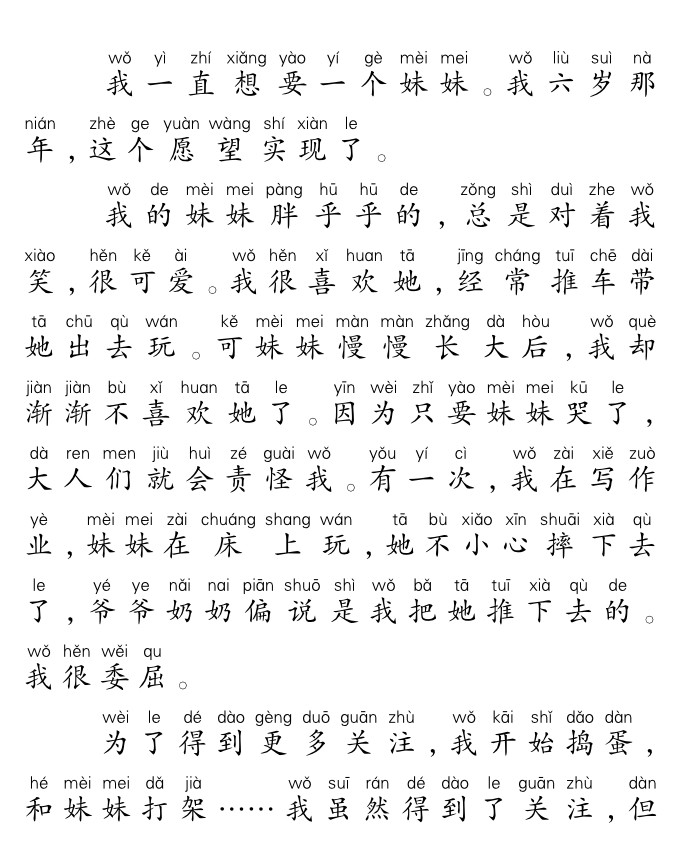 wǒ yì zhí xiǎng yào yí gè mèi mei wǒ liù suì nà
我一直想要一个妹妹。我六岁那
nián zhè ge yuàn wàng shí xiàn le
年，这个愿望实现了。
wǒ de mèi mei pàng hū hū de zǒng shì duì zhe wǒ
我的妹妹胖乎乎的，总是对着我
xiào hěn kě ài wǒ hěn xǐ huan tā jīng cháng tuī chē dài
笑，很可爱。我很喜欢她，经常推车带
tā chū qù wán kě mèi mei màn màn zhǎng dà hòu wǒ què
她出去玩。可妹妹慢慢长大后，我却
jiàn jiàn bù xǐ huan tā le yīn wèi zhǐ yào mèi mei kū le
渐渐不喜欢她了。因为只要妹妹哭了，
dà ren men jiù huì zé guài wǒ yǒu yí cì wǒ zài xiě zuò
大人们就会责怪我。有一次，我在写作
yè mèi mei zài chuáng shang wán tā bù xiǎo xīn shuāi xià qù
业，妹妹在床上玩，她不小心摔下去
le yé ye nǎi nai piān shuō shì wǒ bǎ tā tuī xià qù de
了，爷爷奶奶偏说是我把她推下去的。
wǒ hěn wěi qu
我很委屈。
wèi le dé dào gèng duō guān zhù wǒ kāi shǐ dǎo dàn
为了得到更多关注，我开始捣蛋，
hé mèi mei dǎ jià wǒ suī rán dé dào le guān zhù dàn
和妹妹打架……我虽然得到了关注，但